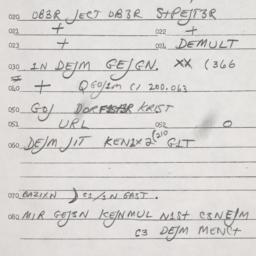 020 OB3R JECT OB3R S+PEJT3R
021 + 022 +
023 + 024 DEMULT
030 1N DEJM GEJGN. XX (366
060 + QGO/1M C1 200.063
050 GOJ KRIST
051 URL 052 O
060 DEJM JIT KEN1X2 (210 G1T
070 BAZ1XN ) C1/3N GAST.
080 MIR GEJ3N KEJNMUL N1ST C3NEJM
C3 DEJM MENC+